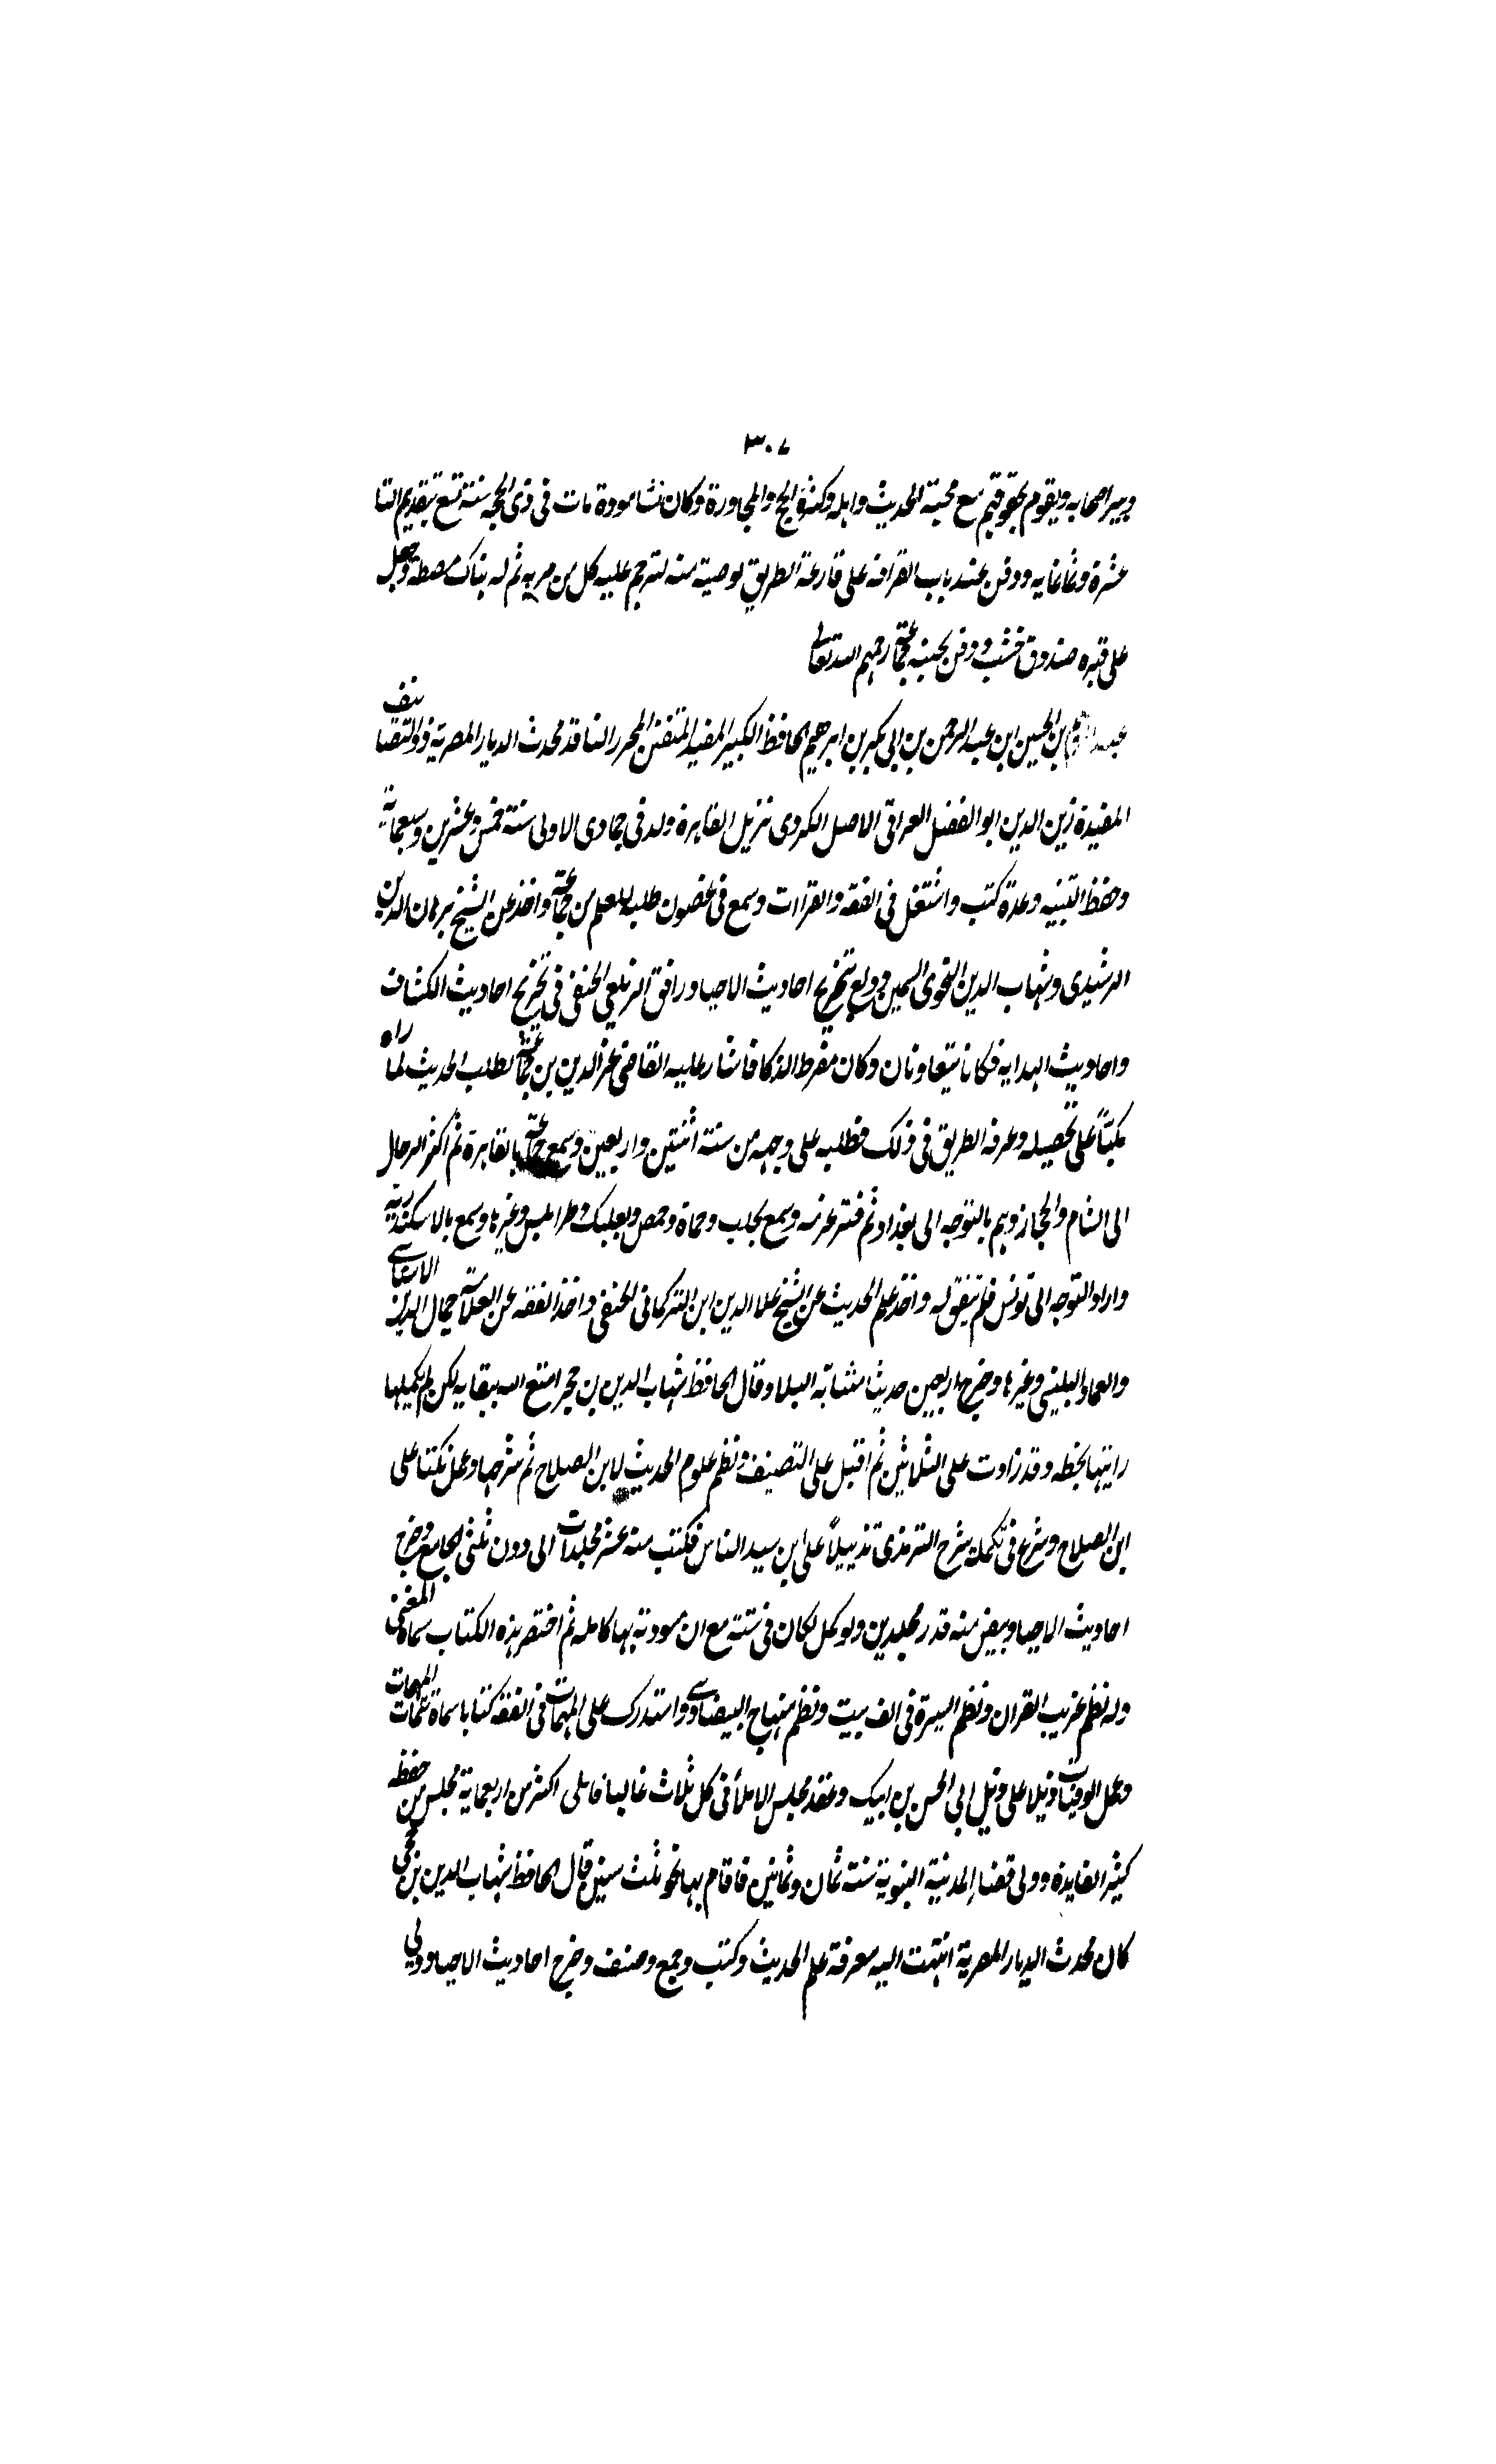 ٣٠٧
ويبر اصحابه ويقوم بحقوقهم مع محبة الحديث واهله وكثرة الحج والمجاورة وكان نشا موودة مات في ذى الحجة سنة تسع بتقديم التا
عشرة وثمانمايه ودفن عند باب القرافه على قارعة الطريق لوصية منه لترحم عليه كل من مر به ثم له بناك مصطبة وجعل
على قبره صندوق خشب ودفن بجنبه جماعة رحمهم الله تعالى
عبد الرحيم بن الحسين ابن عبد الرحمن بن ابى بكر بن ابرهيم الحافظ الكبير المفيد المتقن المحرر الناقد محدث الديار المصرية ذو التصانيف
المفيدة زين الدين ابو الفضل العراقى الاصل الكردى نزيل القاهرة ولد فى جمادى الاولى سنة خمس وعشرين وسبعماية
وحفظ التنبيه وعدة كتب واشتغل فى الفقه والقراات وسمع فى غضون طلبه للعلم من جماعة واخذ عن الشيخ برهان الدين
الرشيدى وشهاب الدين النحوى السمين وولع بتخريج احاديث الاحيا ورافق الزيلعى الحنفى فى تخريج احاديث الكشاف
واحاديث الهدايه فكانا يتعاونان وكان مفرط الذكا فاشار عليه القاضى عز الدين بن جماعة لطلب الحديث لما راه
مكبّاً على تحصيله وعرفه الطريق فى ذلك فطلبه على وجهه من سنة اثنتين واربعين وسمع جماعة بالقاهرة ثم اكثر الرحال
الى الشام والحجاز وهم بالتوجه الى بغداد ثم فتر عزمه وسمع بحلب وحماة وحمص وبعلبك وطرابلس وغيرها وسمع بالاسكندرية
واراد التوجه الى تونس فلم يتفق له واخذ علم الحديث عن الشيخ علا الدين ابن التركمانى الحنفى واخذ الفقه عن العلامة جمال الدين الاسناى
والعماد البلبيسى وغيرها وخرج اربعين حديثا متشابة البلاد وقال الحافظ شهاب الدين بن حجر امتع الله ببقايه لكن لم يكملها
رايتها بخطه وقد زادت على الثلاثين ثم اقبل على التصنيف ونظم علوم الحديث لابن الصلاح ثم شرحها وعمل نكتا على
ابن الصلاح وشرع فى تكملة شرح الترمذى تذييلاً على ابن سيد الناس فكتب منه عشر مجلدات الى دون ثلثى الجامع وخرج
احاديث الاحيا وبيض منه قدر مجلدين ولو كمل لكان فى ستة مع ان مسودته بها كامله ثم اختصر هذه الكتاب سماه المغنى
وله نظم غريب القران ونظم السيرة فى الف بيت ونظم منهاج البيضاوى واستدرك على المهمات فى الفقه كتابا سماه تتمات المهمات
وعمل الوفيات ذيلا على ذيل ابى الحسن بن ايبك وعقد مجلس الاملأ فى كل ثلاث غالبا فاملى اكثر من اربعماية مجلس من حفظه
كثير الفايدة وولى قضا المدينة النبوية سنة ثمان وثمانين فاقام بها نحو ثلث سنين قال الحافظ شهاب الدين بن حجى
كان محدث الديار المصرية انتهت اليه معرفة علم الحديث وكتب وجمع وصنف وخرج احاديث الاحيا وولى